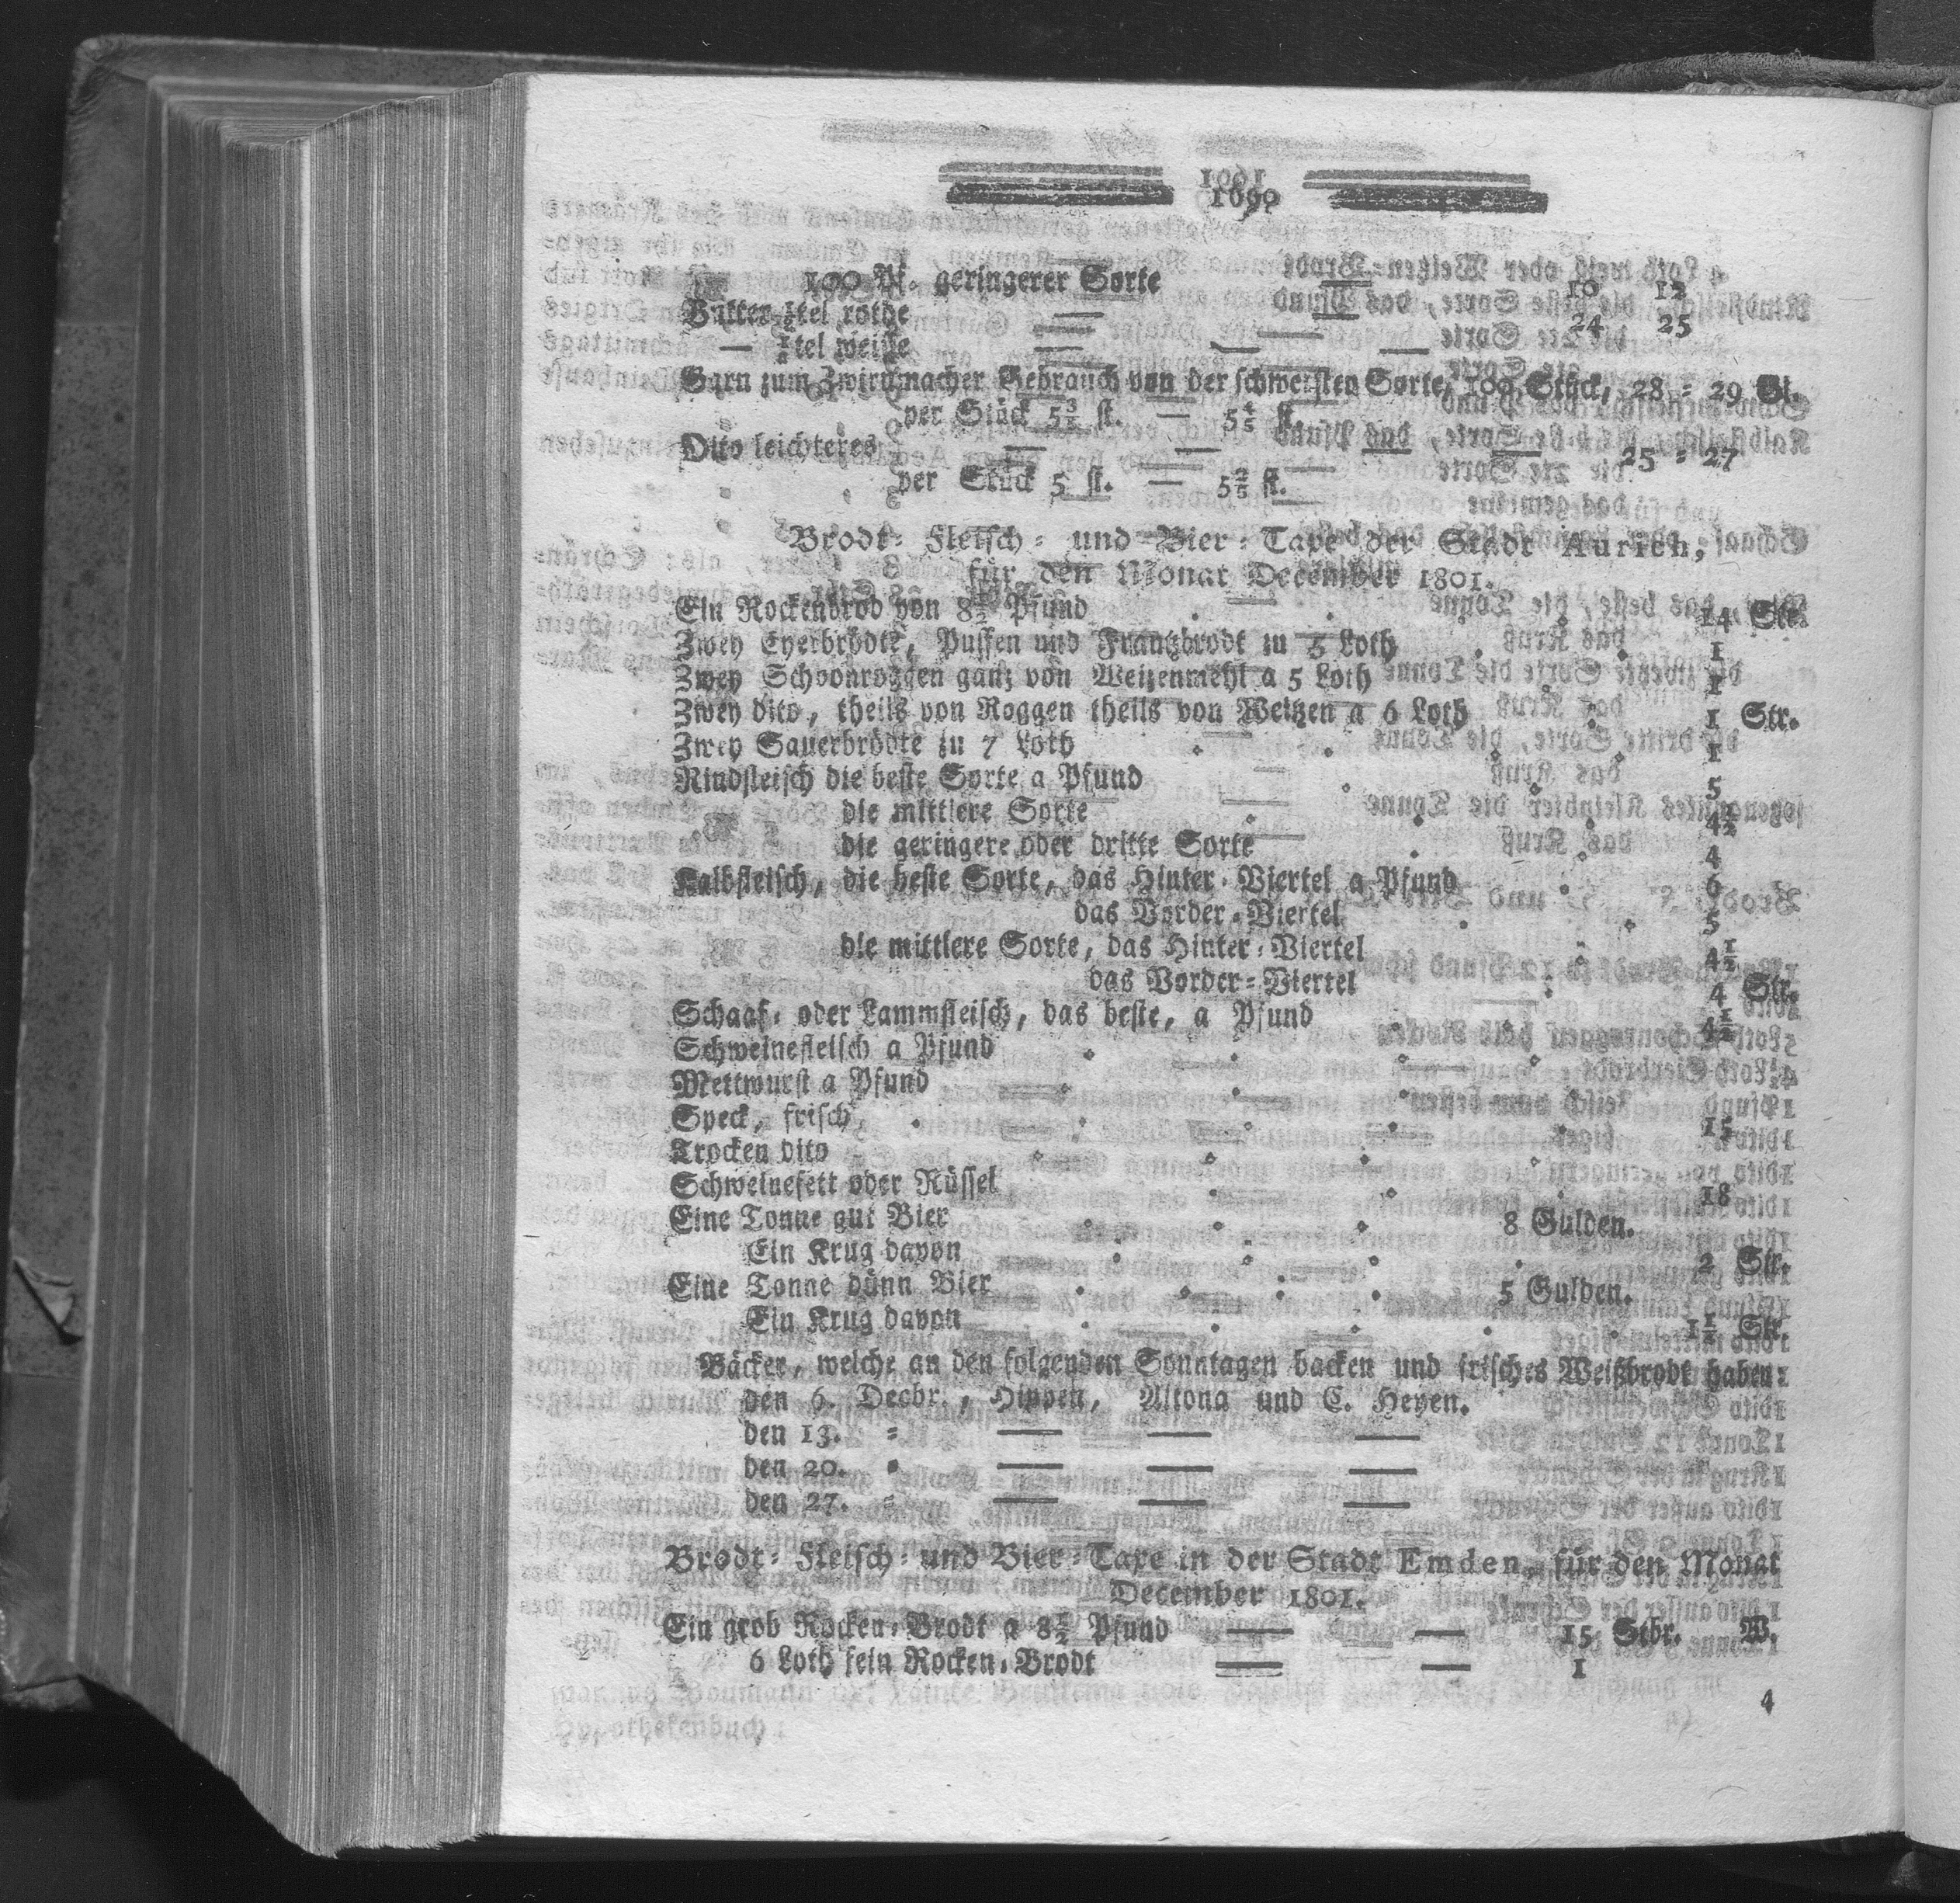 1690
100 Pf. geringerer Sorte — 10 12
Butter ½tel rothe — — 24 25
— ½tel weisse — — —
Garn zum Zwirnmacher Gebrauch von der schwersten Sorte, 100 Stück, 28 = 29 Gl.
per Stück 5⅗ st. — 5⅘ st.
Dito leichteres — — — — 25 = 27
per Stück 5 st. — 5⅖ st.
Brodt= Fleisch= und Bier=Taxe der Stadt Aurich,
für den Monat December 1801.
Ein Rockenbrod von 8½ Pfund 14 Str.
Zwey Eyerbrödte, Puffen und Frantzbrodt zu 5 Loth 1
Zwey Schoonroggen gantz von Weitzenmehl a 5 Loth 1
Zwey dito, theils von Roggen theils von Weitzen a 6 Loth 1 Str.
Zwey Sauerbrödte zu 7 Loth 1
Rindfleisch die beste Sorte a Pfund 5
die mittlere Sorte 4½
die geringere oder dritte Sorte 4
Kalbfleisch, die beste Sorte, das Hinter=Viertel a Pfund 6
das Vorder=Viertel 5
die mittlere Sorte, das Hinter=Viertel 4½
das Vorder=Viertel 4 Str.
Schaaf= oder Lammfleisch, das beste, a Pfund 4½
Schweinefleisch a Pfund
Mettwurst a Pfund
Speck, frisch 15
Trocken dito
Schweinefett oder Rüssel 18
Eine Tonne gut Bier 8 Gulden.
Ein Krug davon 2 Str.
Eine Tonne dünn Bier 5 Gulden.
Ein Krug davon 1½ Str.
Bäcker, welche an den folgenden Sonntagen backen und frisches Weißbrodt haben:
den 6. Decbr., Hippen, Altona und C. Heyen.
den 13. = — — —
den 20. = — — —
den 27. = — — —
Brodt= Fleisch= und Bier=Taxe in der Stadt Emden, für den Monat
December 1801.
Ein grob Rocken=Brodt a 8½ Pfund — — 15 Stbr. W.
6 Loth fein Rocken=Brodt — — 1
4